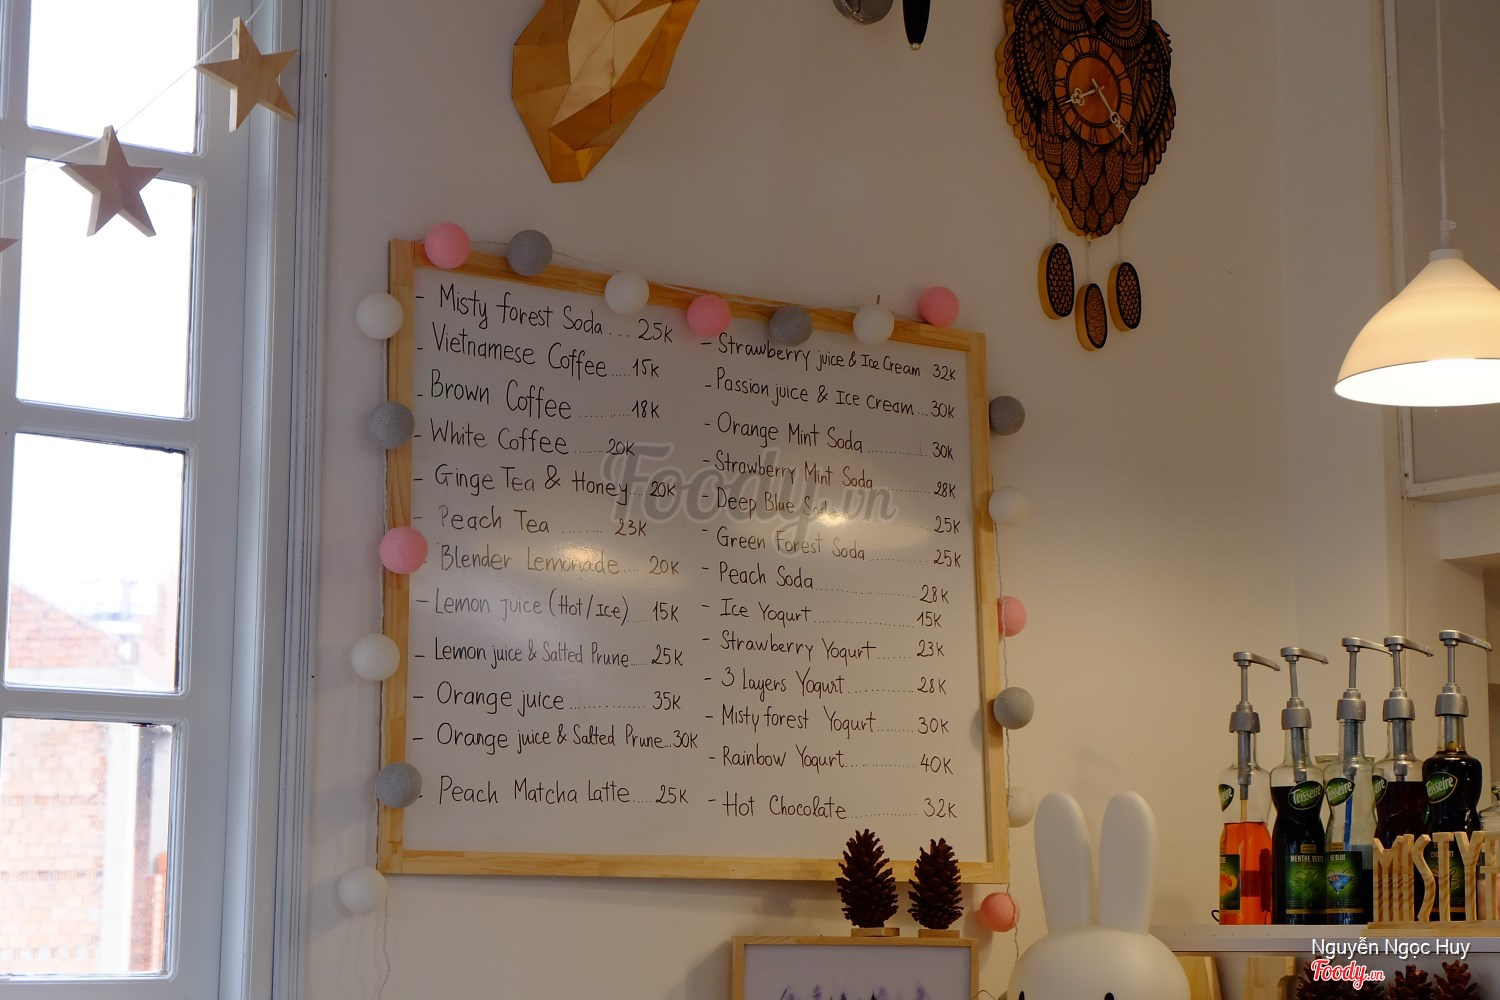 - Misty forest Soda .... 25K
- Vietnamese Coffee ..... 15K
- Brown Coffee .......... 18K
- White Coffee ....... 20K
- Ginge Tea & Honey.... 20K
- Peach Tea ........ 23K
- Blender Lemonade .... 20K
- Lemon juice (Hot/Ice) 15K
- Lemon juice & Salted Prune..... 25K
- Orange juice .............. 35K
- Orange juice & Salted Prune...30K
- Peach Matcha Latte..... 25K
- Strawberry juice & Ice Cream 32K
- Passion juice & Ice cream...30K
- Orange Mint Soda .......... 30K
- Strawberry Mint Soda .......... 28K
- Deep Blue Soda .......... 25K
- Green Forest Soda .......... 25K
- Peach Soda .......... 28K
- Ice Yogurt .......... 15K
- Strawberry Yogurt ....... 23K
- 3 Layers Yogurt .......... 28K
- Misty forest Yogurt ....... 30K
- Rainbow Yogurt .......... 40K
- Hot Chocolate .......... 32K
Foody.vn
Teisseire
Teisseire
Teisseire
MENTHE VERTE
MISTY
Nguyễn Ngọc Huy
Foody.vn